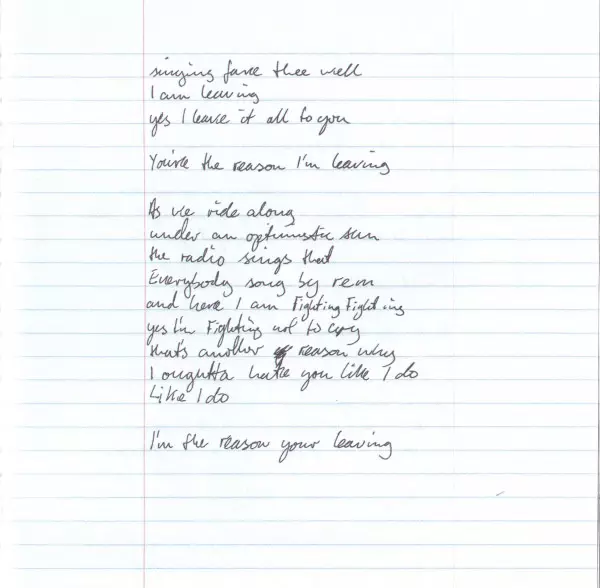 singing fare thee well
I am leaving
yes I leave it all to you
You're the reason I'm leaving
As we ride along
under an optimistic sun
the radio sings that
Everybody song by rem
and here I am Fighting Fighting
yes I'm Fighting not to cry
that's another reason why
I oughtta hate you like I do
Like I do
I'm the reason your leaving